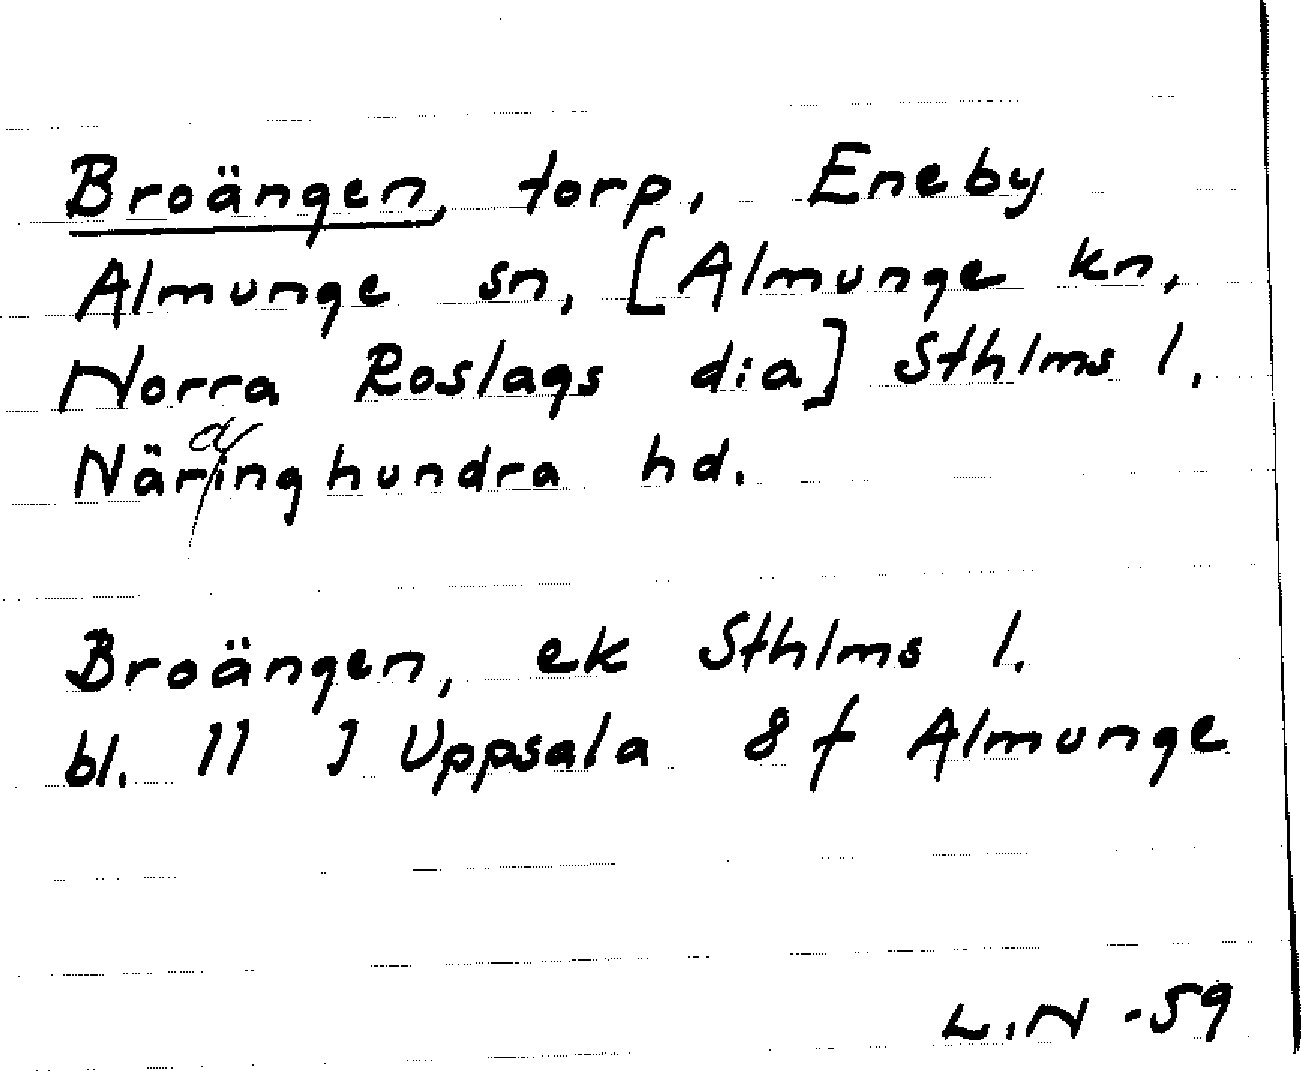 Broängen, torp, Eneby
Almunge sn, [Almunge kn,
Norra Roslags dia] Sthlms l.
Närdinghundra hd.
Broängen, ek Sthlms l.
bl. 11 J Uppsala 8 f Almunge
L.N -59